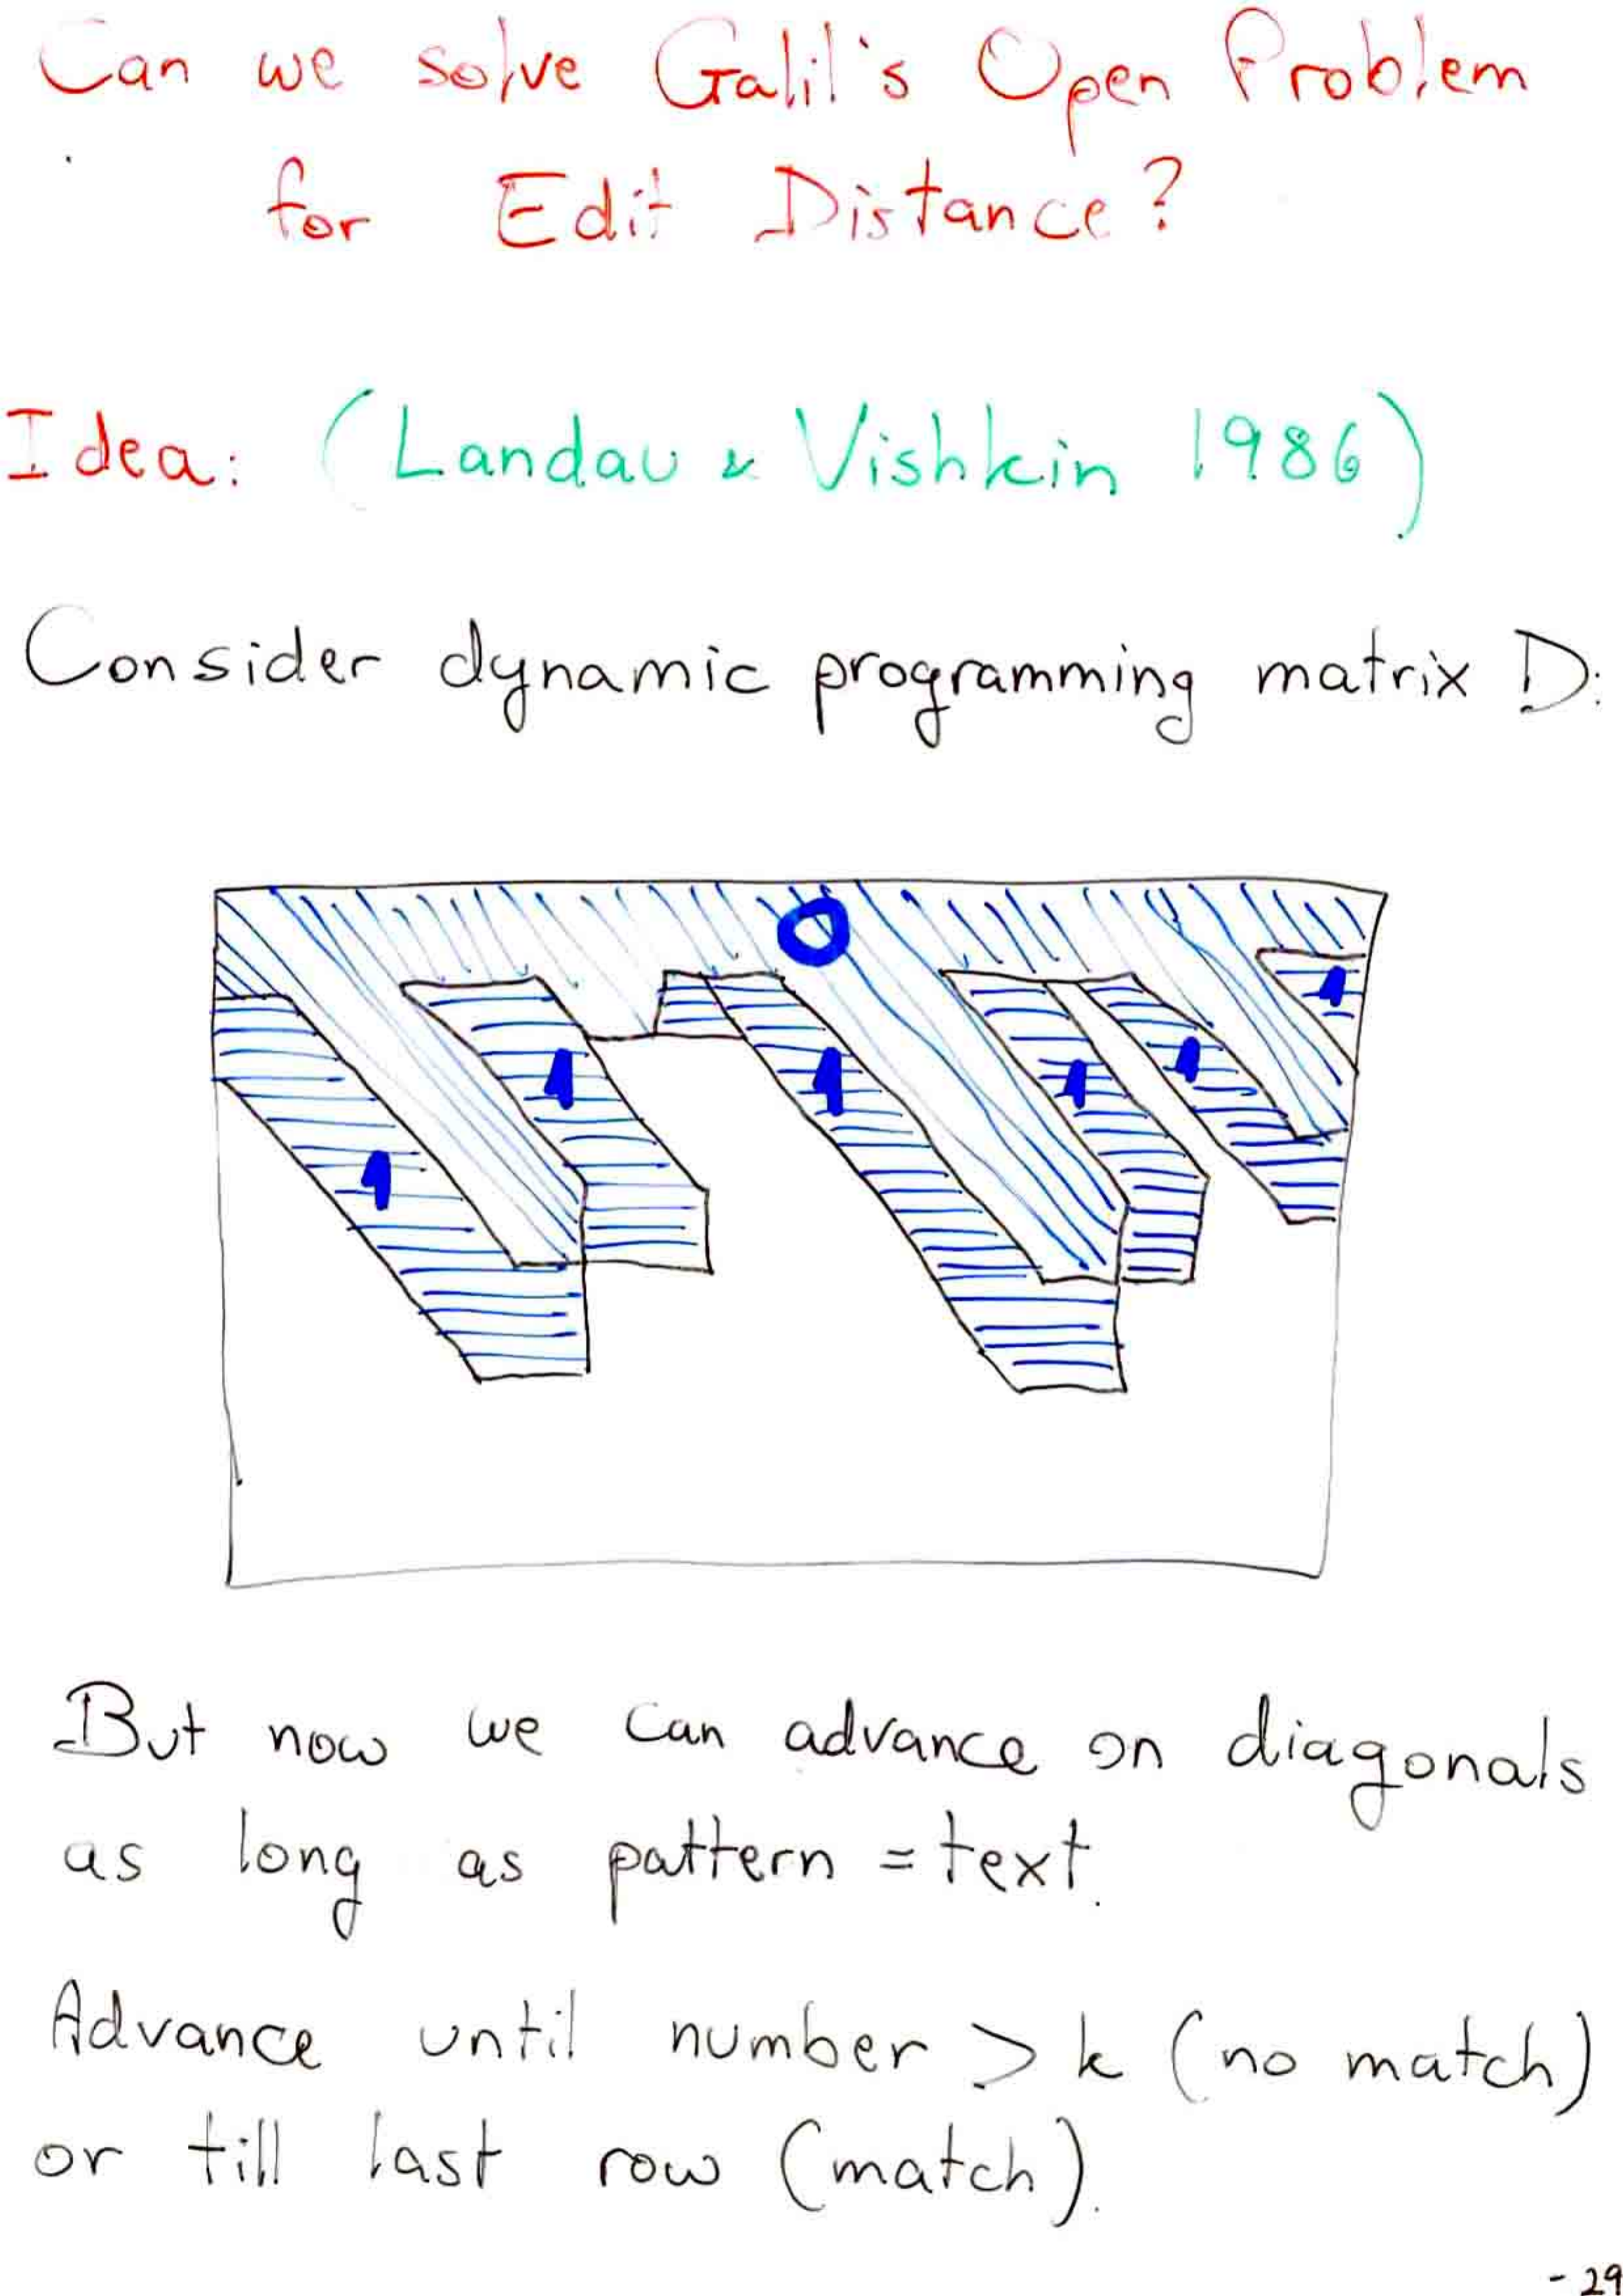 Can we solve Galil's Open Problem
for Edit Distance?
Idea: (Landau & Vishkin 1986)
Consider dynamic programming matrix D:
0
1
1
1
1
1
1
But now we can advance on diagonals
as long as pattern = text.
Advance until number > k (no match)
or till last row (match).
- 29